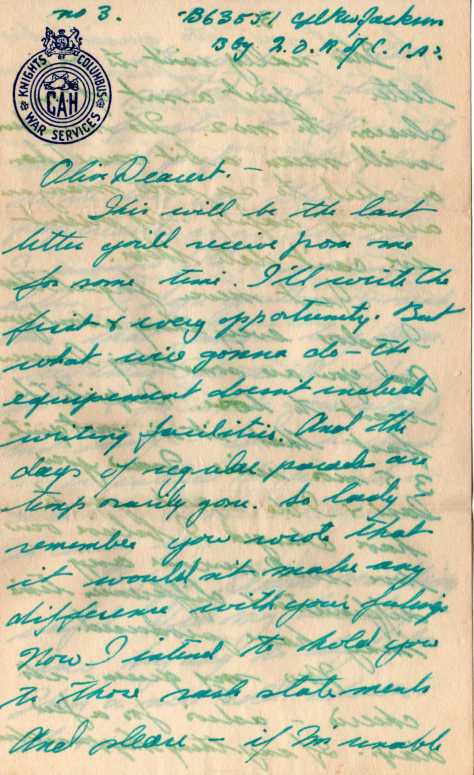 no 3.
B63551 Cyclist Jackson
B Sqy 2. D. R of C. CA.
KNIGHTS OF COLUMBUS
CAH
WAR SERVICES
Olive Dearest. -
This will be the last
letter you'll receive from me
for some time. I'll write the
first & every opportunity. But
what wire gonna do - the
equipement doesnt include
writing facilities. And the
days of regular parades are
temporarily gone. So lady
remember you wrote that
it wouldn't make any
difference with your feelings
Now I intend to hold you
to those rash statements
And please - if I'm unable